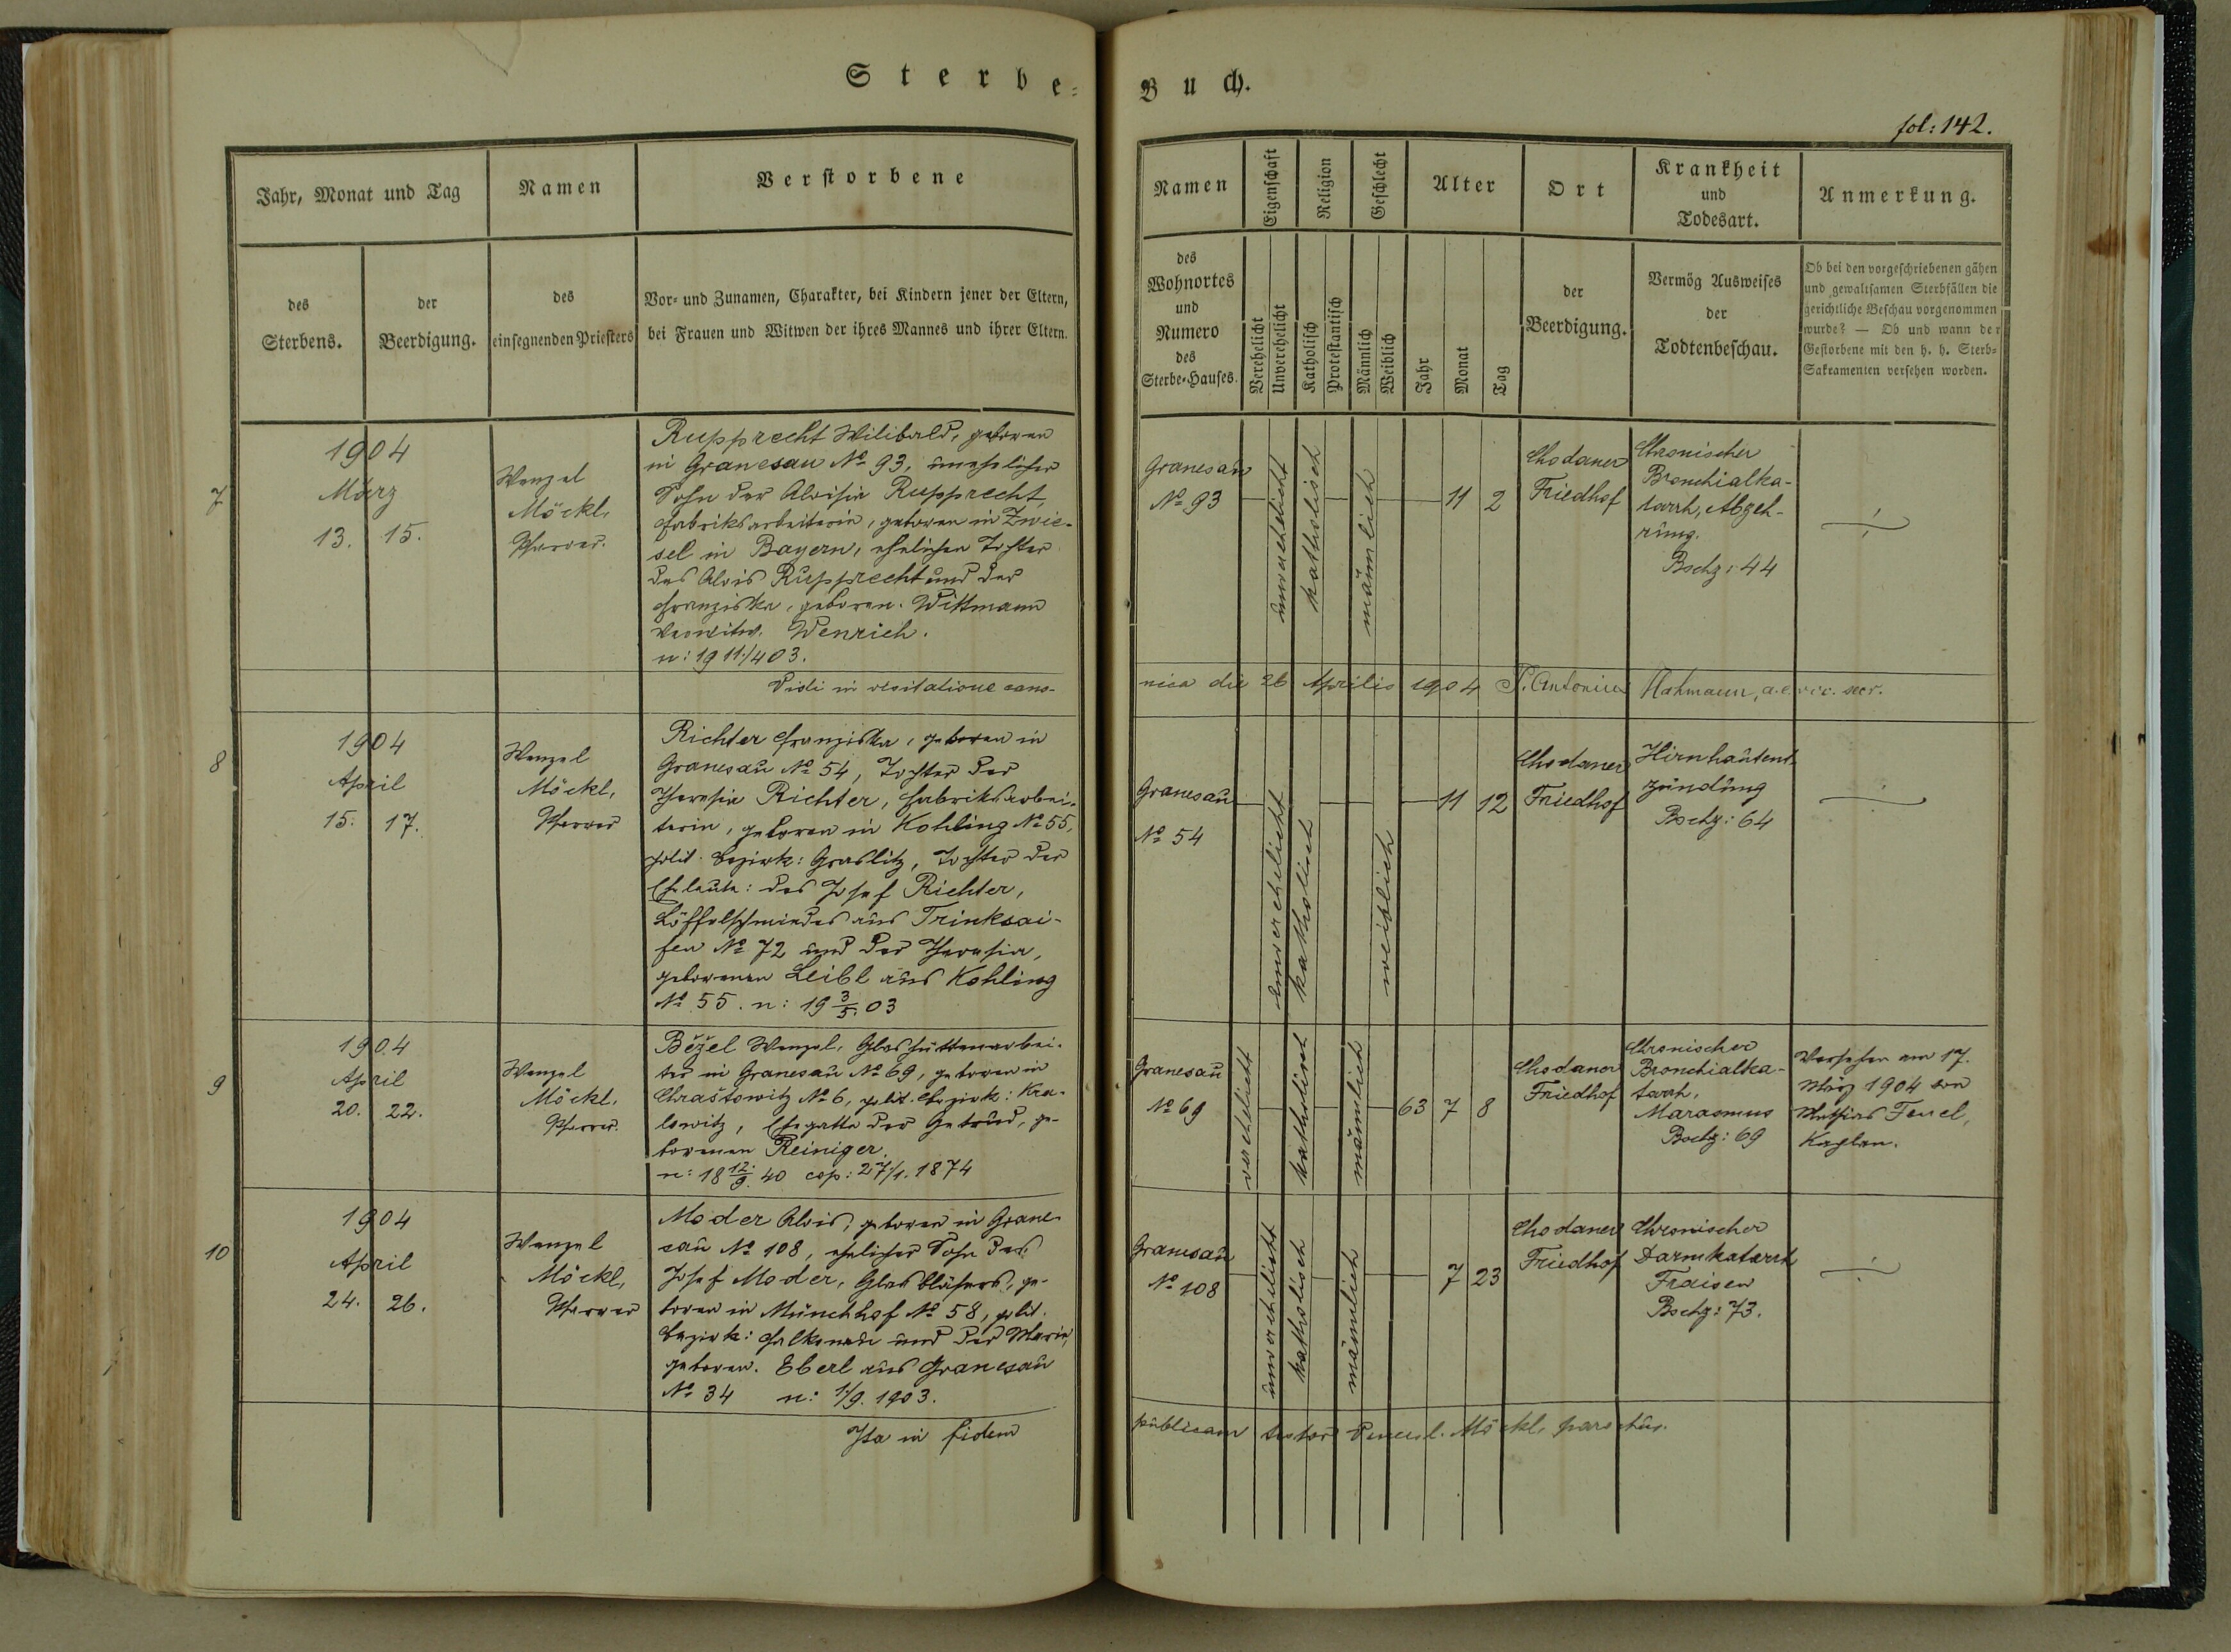 Sterbe=
Buch.
fol: 142.
Jahr, Monat und Tag
Namen
Verstorbene
des
Sterbens.
der
Beerdigung.
des
einsegnenden Priesters
Vor= und Zunamen, Charakter, bei Kindern jener der Eltern,
bei Frauen und Witwen der ihres Mannes und ihrer Eltern.
Namen
Eigenschaft
Religion
Geschlecht
Alter
Ort
Krankheit
und
Todesart.
Anmerkung.
des
Wohnortes
und
Numero
des
Sterbe=Hauses.
Verehelicht
Unverehelicht
Katholisch
Protestantisch
Männlich
Weiblich
Jahr
Monat
Tag
der
Beerdigung.
Vermög Ausweises
der
Todtenbeschau.
Ob bei den vorgeschriebenen gähen
und gewaltsamen Sterbfällen die
gerichtliche Beschau vorgenommen
wurde? — Ob und wann der
Gestorbene mit den h. h. Sterb=
Sakramenten versehen worden.
7
1904
März
13. 15.
Wenzel
Möckl,
Pfarrer.
Rupprecht Wilibald, geboren
in Granesau No 93, unehelicher
Sohn der Aloisia Rupprecht,
Fabriksarbeiterin, geboren in Zwie-
sel in Bayern, ehelichen Tochter
des Alois Rupprecht und der
Franziska, geboren. Wittmann
verwitw. Wenrich.
n: 19 11./4 03.
Granesau
No 93
unverehelicht
katholisch
männlich
11 2
Chodauer
Friedhof
Chronischer
Bronchialka-
tarrh, Abzeh-
rung.
Bschg: 44
Vidi in visitatione cano-
nica die 26 Aprilis 1904 P. Antonius
8
1904
April
15. 17.
Wenzel
Möckl,
Pfarrer
Richter Franziska, geboren in
Granesau No 54, Tochter der
Theresia Richter, Fabriksarbei-
terin, geboren in Kohling No 55,
polit. Bezirk: Graslitz, Tochter der
Eheleute: des Josef Richter,
Löffelschmiedes aus Trinksai-
fen No 72 und der Theresia,
geborenen Leibl aus Kohling
No 55. n: 19 3/5. 03
Granesau
No 54
unverehelicht
katholisch
weiblich
11 12
Chodauer
Friedhof
Hirnhautent-
zündung
Bschg: 64
9
1904
April
20. 22.
Wenzel
Möckl.
Pfarrer.
Běžel Wenzel, Glashüttenarbei-
ter in Granesau No 69, geboren in
Chraštowitz No 6, polit. Bezirk: Kra-
lowitz, Ehegatte der Gertrud, ge-
borenen Reiniger.
n: 18 12./9. 40 cop: 27/1. 1874
Granesau
No 69
verehelicht
katholisch
männlich
63 7 8
Chodauer
Friedhof
Chronischer
Bronchialka-
tarrh,
Marasmus
Bschg: 69
Versehen am 17.
März 1904 von
Mathias
Kaplan.
10
1904
April
24. 26.
Wenzel
Möckl,
Pfarrer
Moder Alois, geboren in Grane-
sau No 108, ehelicher Sohn des
Josef Moder, Glasbläsers, ge-
boren in Münchhof No 58, polit.
Bezirk: Falkenau und der Maria,
geboren. Eberl aus Granesau
No 34 n: 1/9. 1903.
Granesau
No 108
unverehelicht
katholisch
männlich
7 23
Chodauer
Friedhof
Chronischer
Darmkatarrh
Fraisen
Bschg: 73.
Ita in fidem
publicam testor Möckl, parochus.